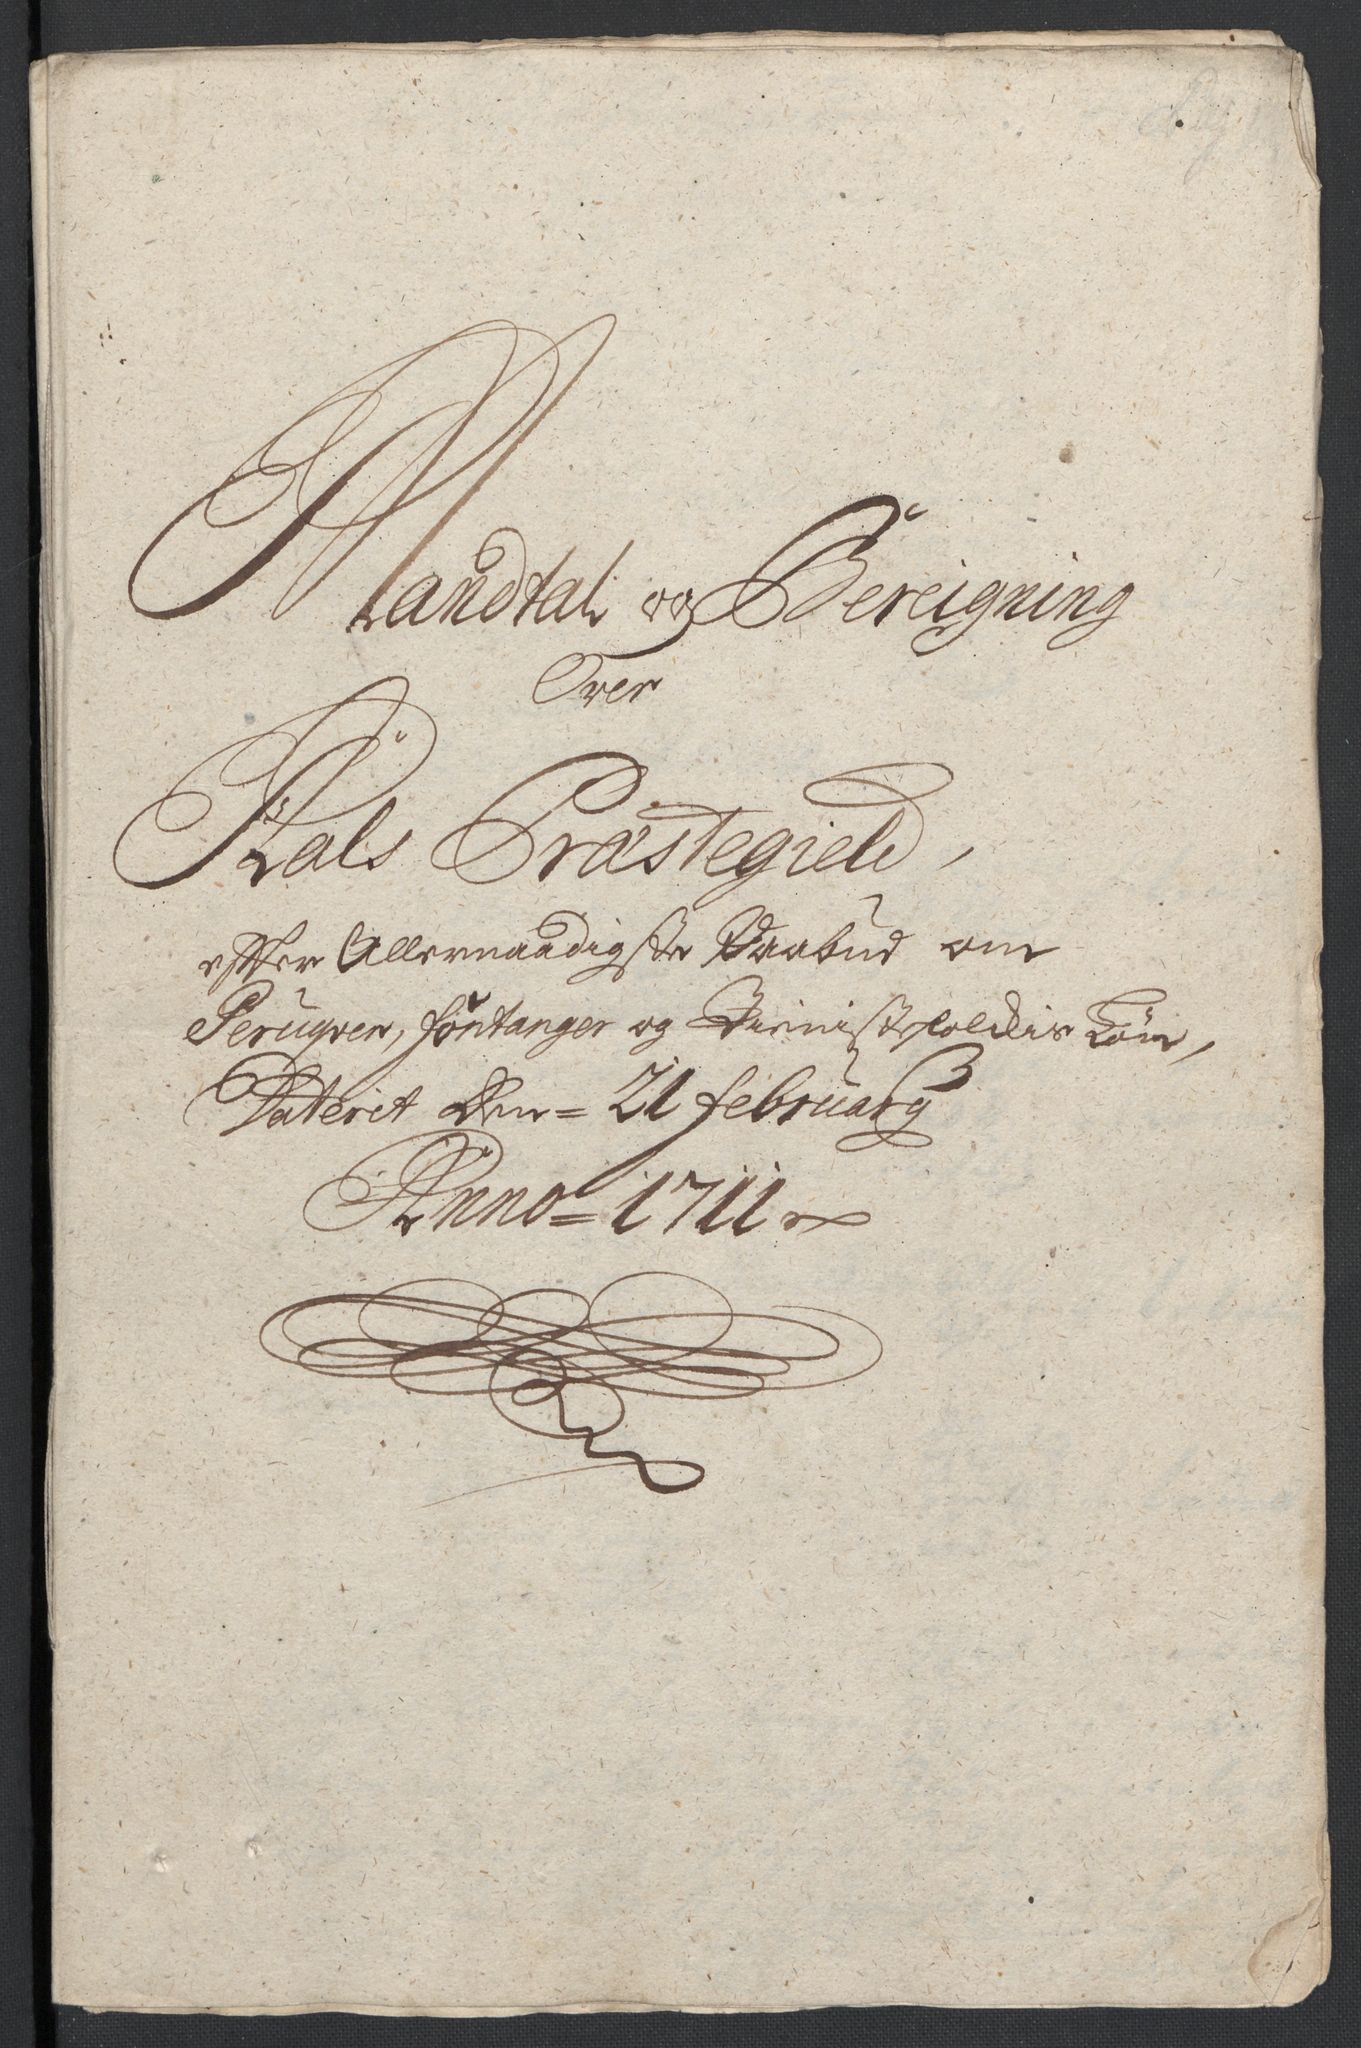 Mandtal og Bereigning
Over
Hals Præstegield,
effter Allernaadigste Paabud om
Perugver, fontanger og Tienistefolckis Løn,
Dateret den = 21 february
Anno = 1711